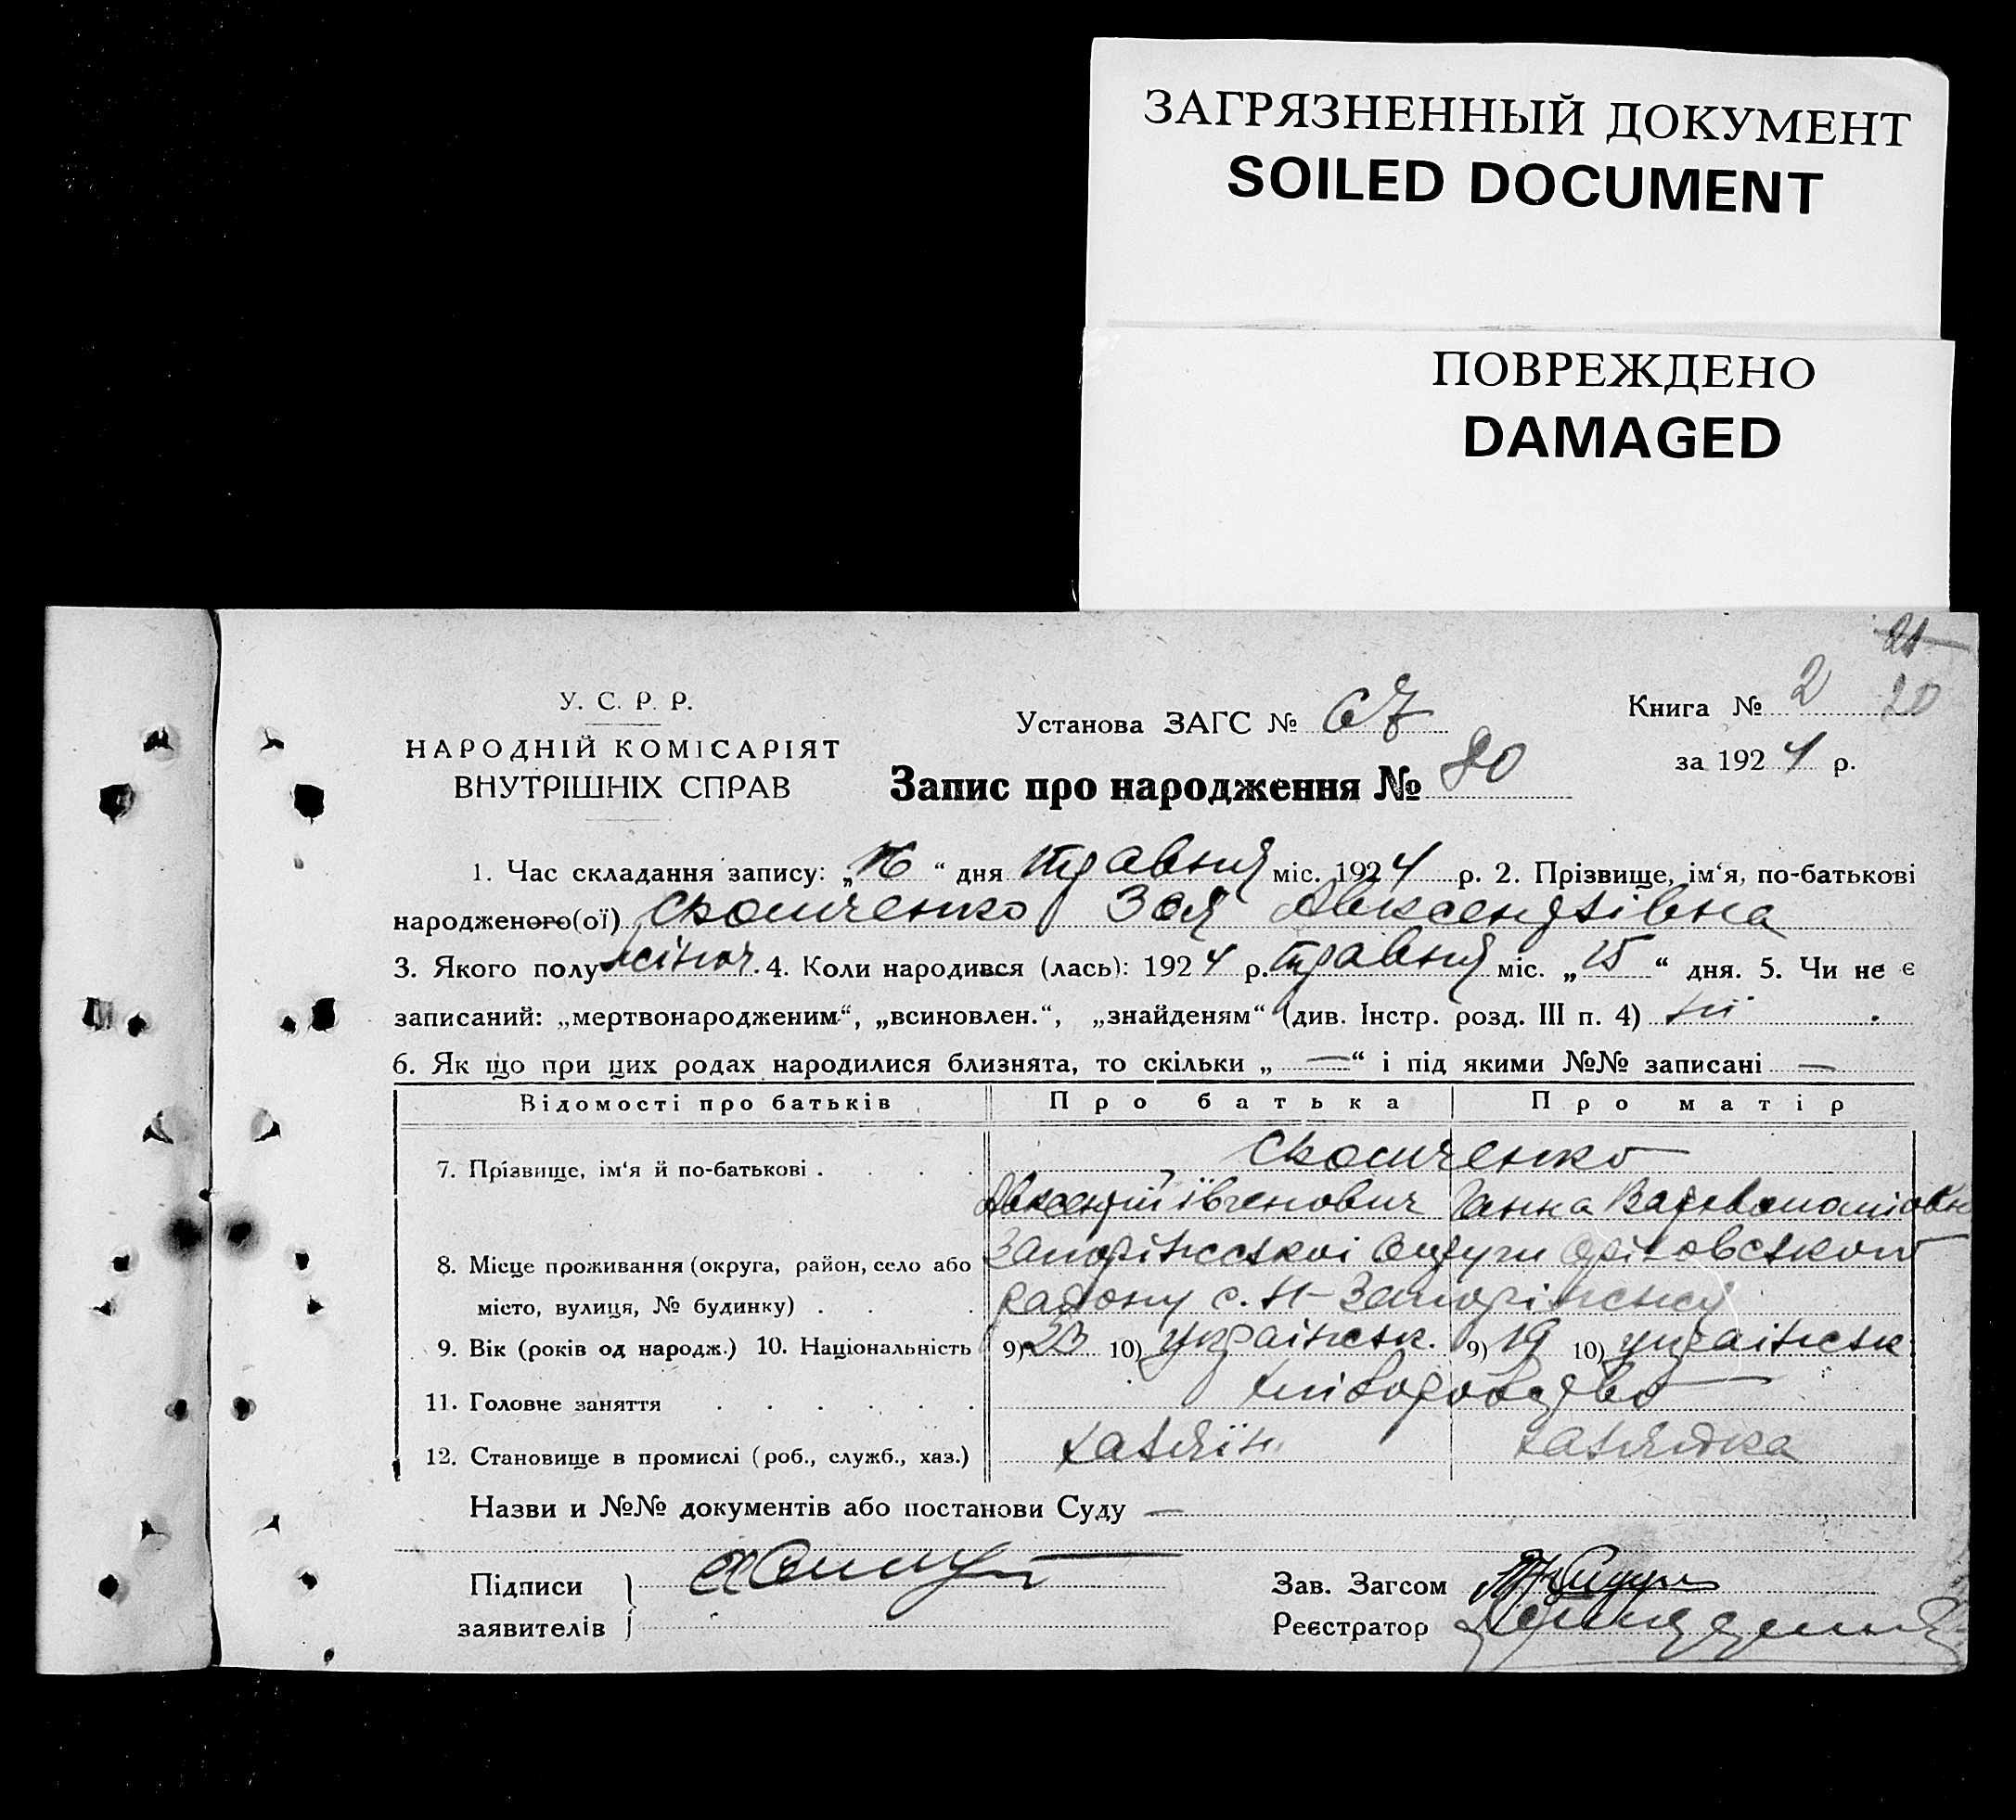 ЗАГРЯЗНЕННЫЙ ДОКУМЕНТ
SOILED DOCUMENT
ПОВРЕЖДЕНО
DAMAGED
21
У. С. Р. Р.
НАРОДНІЙ КОМІСАРІЯТ
ВНУТРІШНІХ СПРАВ
Установа ЗАГС № 67
Книга № 2 20
за 1924 р.
Запис про народження № 80
1. Час складання запису: „16“ дня травня міс. 1924 р. 2. Прізвище, ім‘я, по-батькові
народженого(ої) Зоя Авксентіівна
3. Якого полу жіноч. 4. Коли народився (лась): 1924 р. травня міс. „15“ дня. 5. Чи не є
записаний: „мертвонародженим“, „всиновлен.“, „знайденям“ (див. Інстр. розд. III п. 4) ні
6. Як що при цих родах народилися близнята, то скільки „ — “ і під якими №№ записані —
Відомості про батьків Про батька Про матір
7. Прізвище, ім‘я й по-батькові
Ганна
8. Місце проживання (округа, район, село або Запоріжськоі округи Оріховського
місто, вулиця, № будинку) району с. Н-Запоріжжя
9. Вік (років од народж.) 10. Національність 9) 23 10) українськ. 9) 19 10) українськ
11. Головне заняття хліборобство
12. Становище в промислі (роб., служб., хаз.) хазяїн хазяйка
Назви и №№ документів або постанови Суду —
Підписи
заявителів
Зав. Загсом
Реєстратор